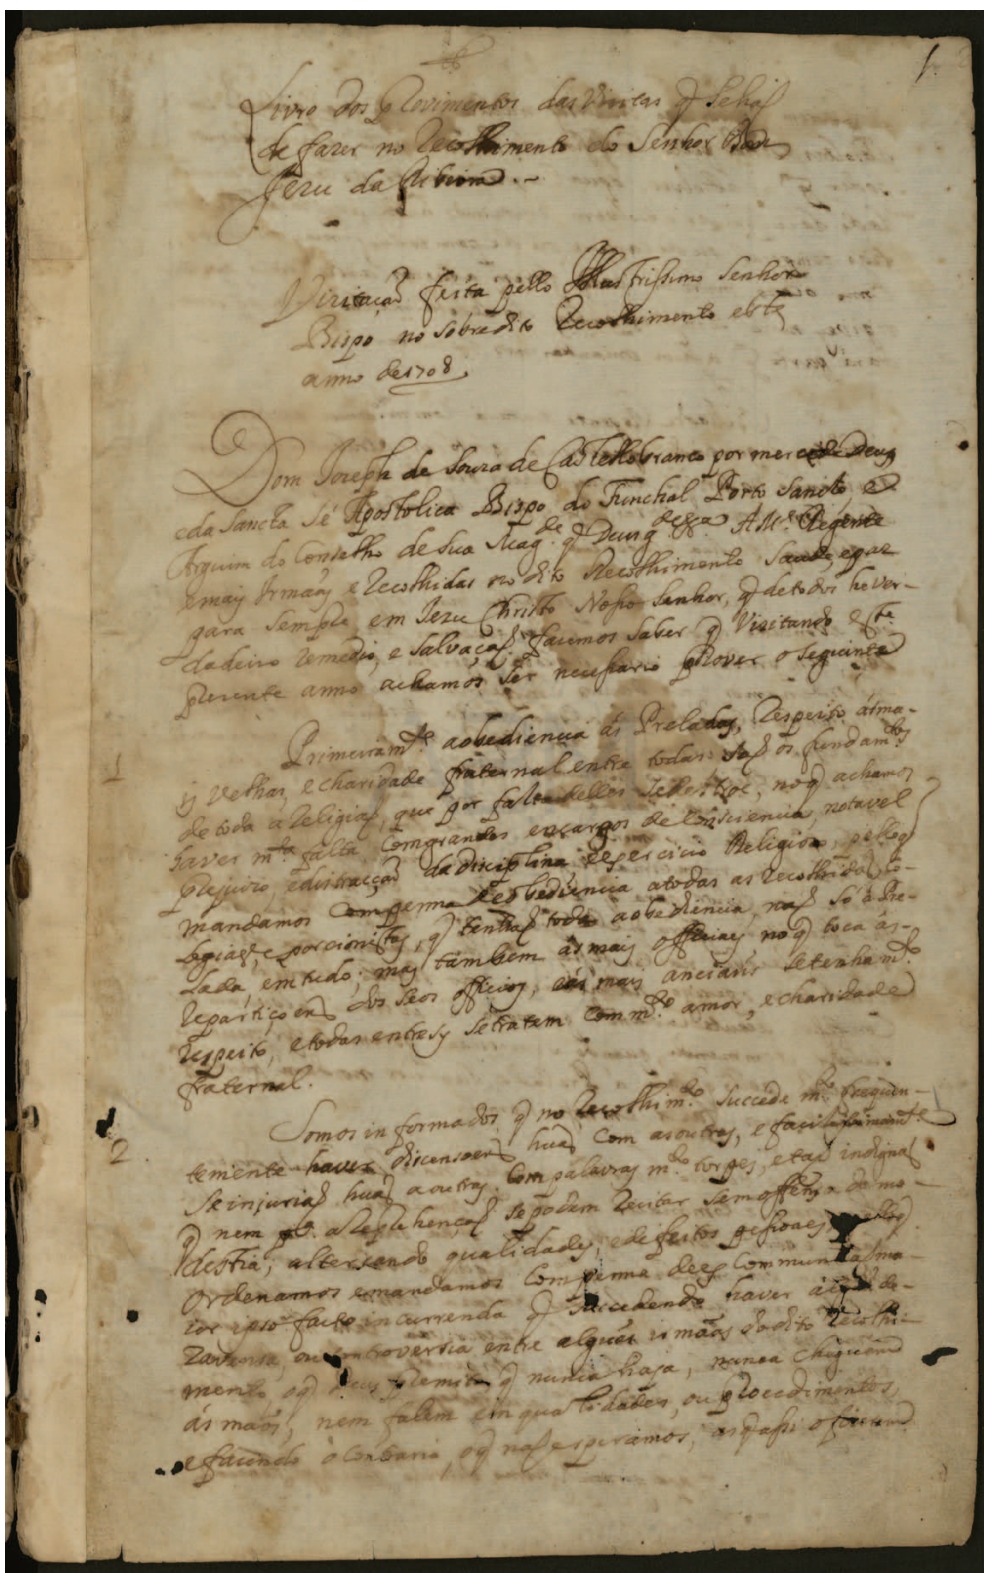 1.
Livro dos provimentos das Vizitas q̃ se haõ
de fazer no Recolhimento do Senhor Bom
Jezu da Ribeira. ~
Vizitaçaõ feita pello Illustrissimo Senhor
Bispo no sobredito Recolhimento este
anno de 1708.
Dom Joseph de Souza de Castellobranco por merce de Deus
e da Sancta Sé Apostolica Bispo do Funchal Porto Sancto e
Arguim do Conselho de Sua Mag.de q̃ Deus g.de &.a A M.e Regente
e mais Irmãas e Recolhidas no dito Recolhimento Saude, e paz
para sempre em Jezu Christo Nosso Senhor, q̃ de todos he ver-
dadeiro remedio, e salvaçaõ. Fazemos saber q̃ Vizitando este
prezente anno achamos ser necessario prover o seguinte
1 Primeiram.te a obediencia ás Preladas, respeito ás ma-
is velhas, e charidade fraternal entre todas saõ os fundam.tos
de toda a religiaõ, que por falta delles se destroe, no q̃ achamos
haver m.ta falta com grandes encargos de consciencia, notavel
prejuizo, e distracçaõ da disciplina e exercicio Religioso, pello q̃
mandamos com penna de obediencia a todas as recolhidas, co-
legiaes, e porcionistas, q̃ tenhaõ toda a obediencia, naõ só á Pre-
lada, em tudo; mas tambem ás mais officiaes no q̃ toca ás
repartiçoens dos seos officios, e ás mais ancians se tenha m.to
respeito, e todas entre sy se tratem com m.to amor, e charidade
fraternal.
2. Somos informados q̃ no Recolhim.to succede m.to frequen-
temente haver dicensoens huãs com as outras, e facilissimam.te
se injuriaõ huãs a outras com palavras m.to torpes, e taõ indignas
q̃ nem p.a a reprehençaõ se podem recitar sem offensa da mo-
destia; altercando qualidades, e defeitos pessoaes, pello q̃
ordenamos e mandamos com penna de ex communhaõ ma-
ior ipso facto incurrenda q̃ succedendo haver de-
zavensa, ou controversia entre alguãs irmãas do dito Recolhi-
mento, o q̃ Deus permita q̃ nunca haja, nunca cheguem
ás maõs, nem falem em qualidades, ou procedimentos,
e fazendo o contrario, o q̃ naõ esperamos, as q̃ assi o fizerem